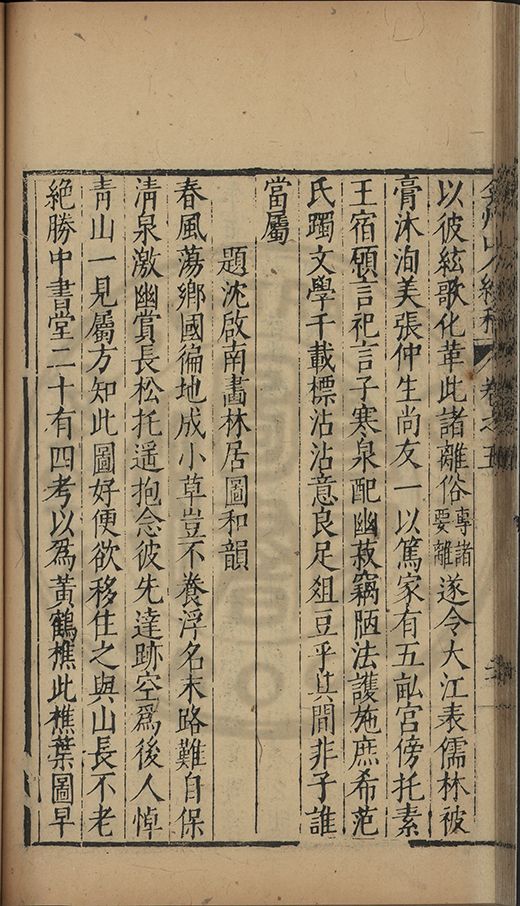 弇州山人續稿 卷之五 二
以彼絃歌化革此諸離俗專諸要離遂令大江表儒林被
膏沐洵美張仲生尚友一以篤家有五畝宮傍托素
王宿領言祀言子寒泉配幽菽竊陋法護施庶希范
氏躅文學千載標沾沾意良足俎豆乎其間非子誰
當屬
題沈啟南畫林居圖和韻
春風蕩鄉國徧地成小草豈不養浮名末路難自保
清泉激幽賞長松托遥抱念彼先達跡空爲後人悼
青山一見屬方知此圖好便欲移住之與山長不老
絶勝中書堂二十有四考以爲黃鶴樵此樵葉圖早